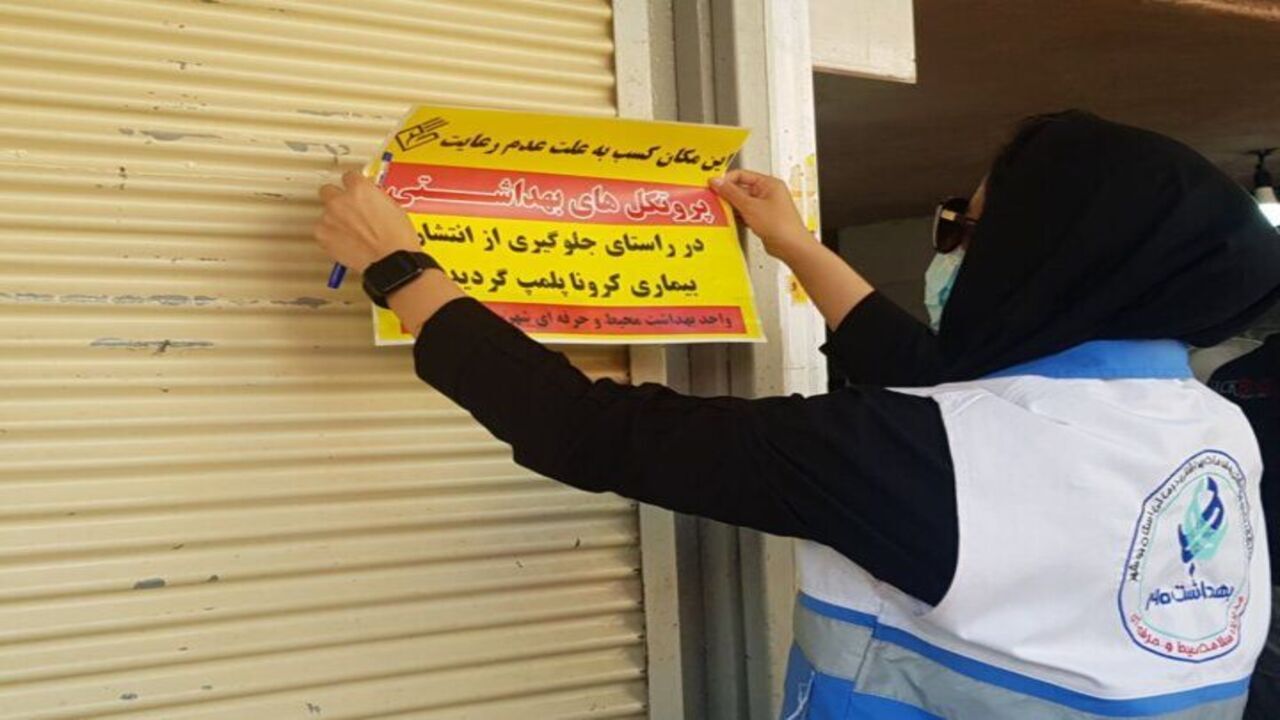 این مکان کسب به علت عدم رعایت
پروتکل های بهداشتی
در راستای جلوگیری از انتشار
بیماری کرونا پلمپ گردید
واحد بهداشت محیط و حرفه ای
بهداشت